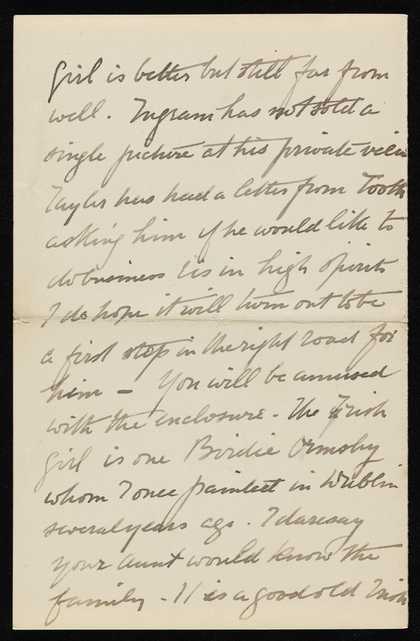 girl is better but still far from
well. Ingram has not sold a
single picture at his private view
Tayler has had a letter from Tooth
asking him if he would like to
do business & is in high spirits
I do hope it will turn out to be
a first step in the right road for
him — You will be amused
with the enclosure. The Irish
girl is one Birdie Ormsby
whom I once painted in Dublin
several years ago. I daresay
your Aunt would know the
family - It is a good old Irish